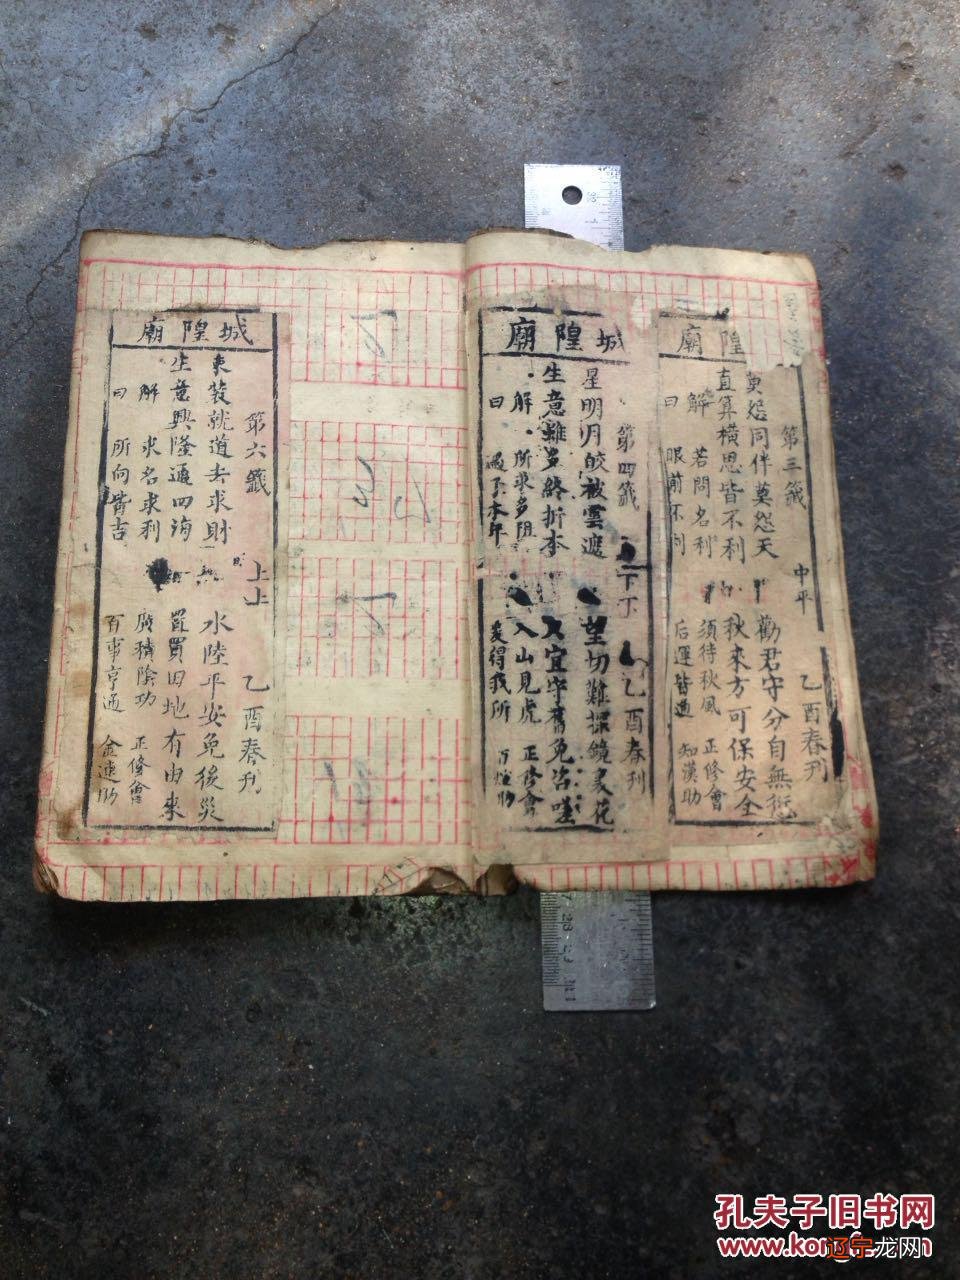 隍廟
第三籤 中平 乙酉春刊
莫怨同伴莫怨天 勸君守分自無
直算橫思皆不利 秋來方可保安全
解 若問名利 須待秋風 正修會
曰 眼前不利 后運皆通 知漢助
城隍廟
第四籤 下下 乙酉春刊
星明月皎被雲遮 望切難探鏡裏花
生意雖多終折本 宜守舊免咨嗟
解 所求多阻 入山見虎 正修會
曰 過了本年 爰得我所 助
城隍廟
第六籤 上上 乙酉春刊
束裝就道去求財 水陸平安免後災
生意興隆通四海 置買田地有由來
解 求名求利 廣積陰功 正修會
曰 所向皆吉 百事亨通 金連助
孔夫子旧书网
www.kong
辽宁龙网